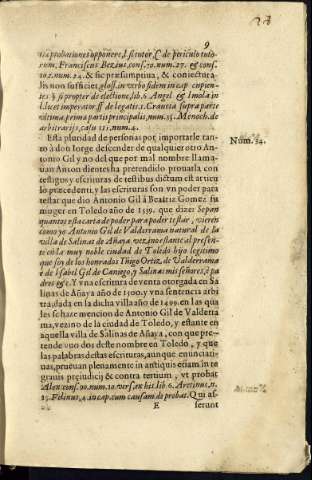 9
ria probationes opponere, l. si tutor, C. de periculo tuto-
rum, Franciscus Bezius, cons. 70. num. 27. & cons.
102. num. 24. & sic præsumptiua, & coniectura-
lis non sufficiet, gloss. in verbo fidem in cap. cupien-
tes § si propter de electione, lib. 6. Angel. & Imola in
l. licet imperator ff. de legatis 1. Craueta supra parte
vltima, prima partis principalis, num. 35. Menoch. de
arbitrarijs, casu 111. num. 4.
Esta pluridad de personas por importarle tan-
to à don Iorge descender de qualquier otro An-
tonio Gil y no del que por mal nombre llama-
uan Anton dientes ha pretendido prouarla con
testigos y escrituras de testibus dictum est articu
lo præcedenti, y las escrituras son vn poder para
testar que dio Antonio Gil à Beatriz Gomez su
muger en Toledo año de 1539. que dize: Sepan
quantos esta carta de poder para poder testar, vieren
como yo Antonio Gil de Valderrama natural de la
villa de Salinas de Añaya, vezino estante al presen-
te en la muy noble ciudad de Toledo hijo legitimo
que soy de los honrados Iñigo Ortiz, de Valderrama
è de Isabel Gil de Caniego, y Salinas mis señores, è pa
dres &c. Y vna escritura de venta otorgada en Sa
linas de Añaya año de 1500. y vna sentencia arbi
traria, dada en la dicha villa año de 1499. en las qua
les se haze mencion de Antonio Gil de Valderra
ma, vezino de la ciudad de Toledo, y estante en
aquella villa de Salinas de Añaya, con que pre-
tende vuo dos deste nombre en Toledo, y que
las palabras destas escrituras, aunque enunciati-
uas, prueuan plenamente in antiquis etiam in te
grauis præjudicij & contra tertium, vt probat
Alex. cons. 90. num. 10. vers. ex his. lib. 6. Aretinus, n.
15. Felinus, 4. in cap. cum causam de probat. Qui as-
E serunt
Num. 34.